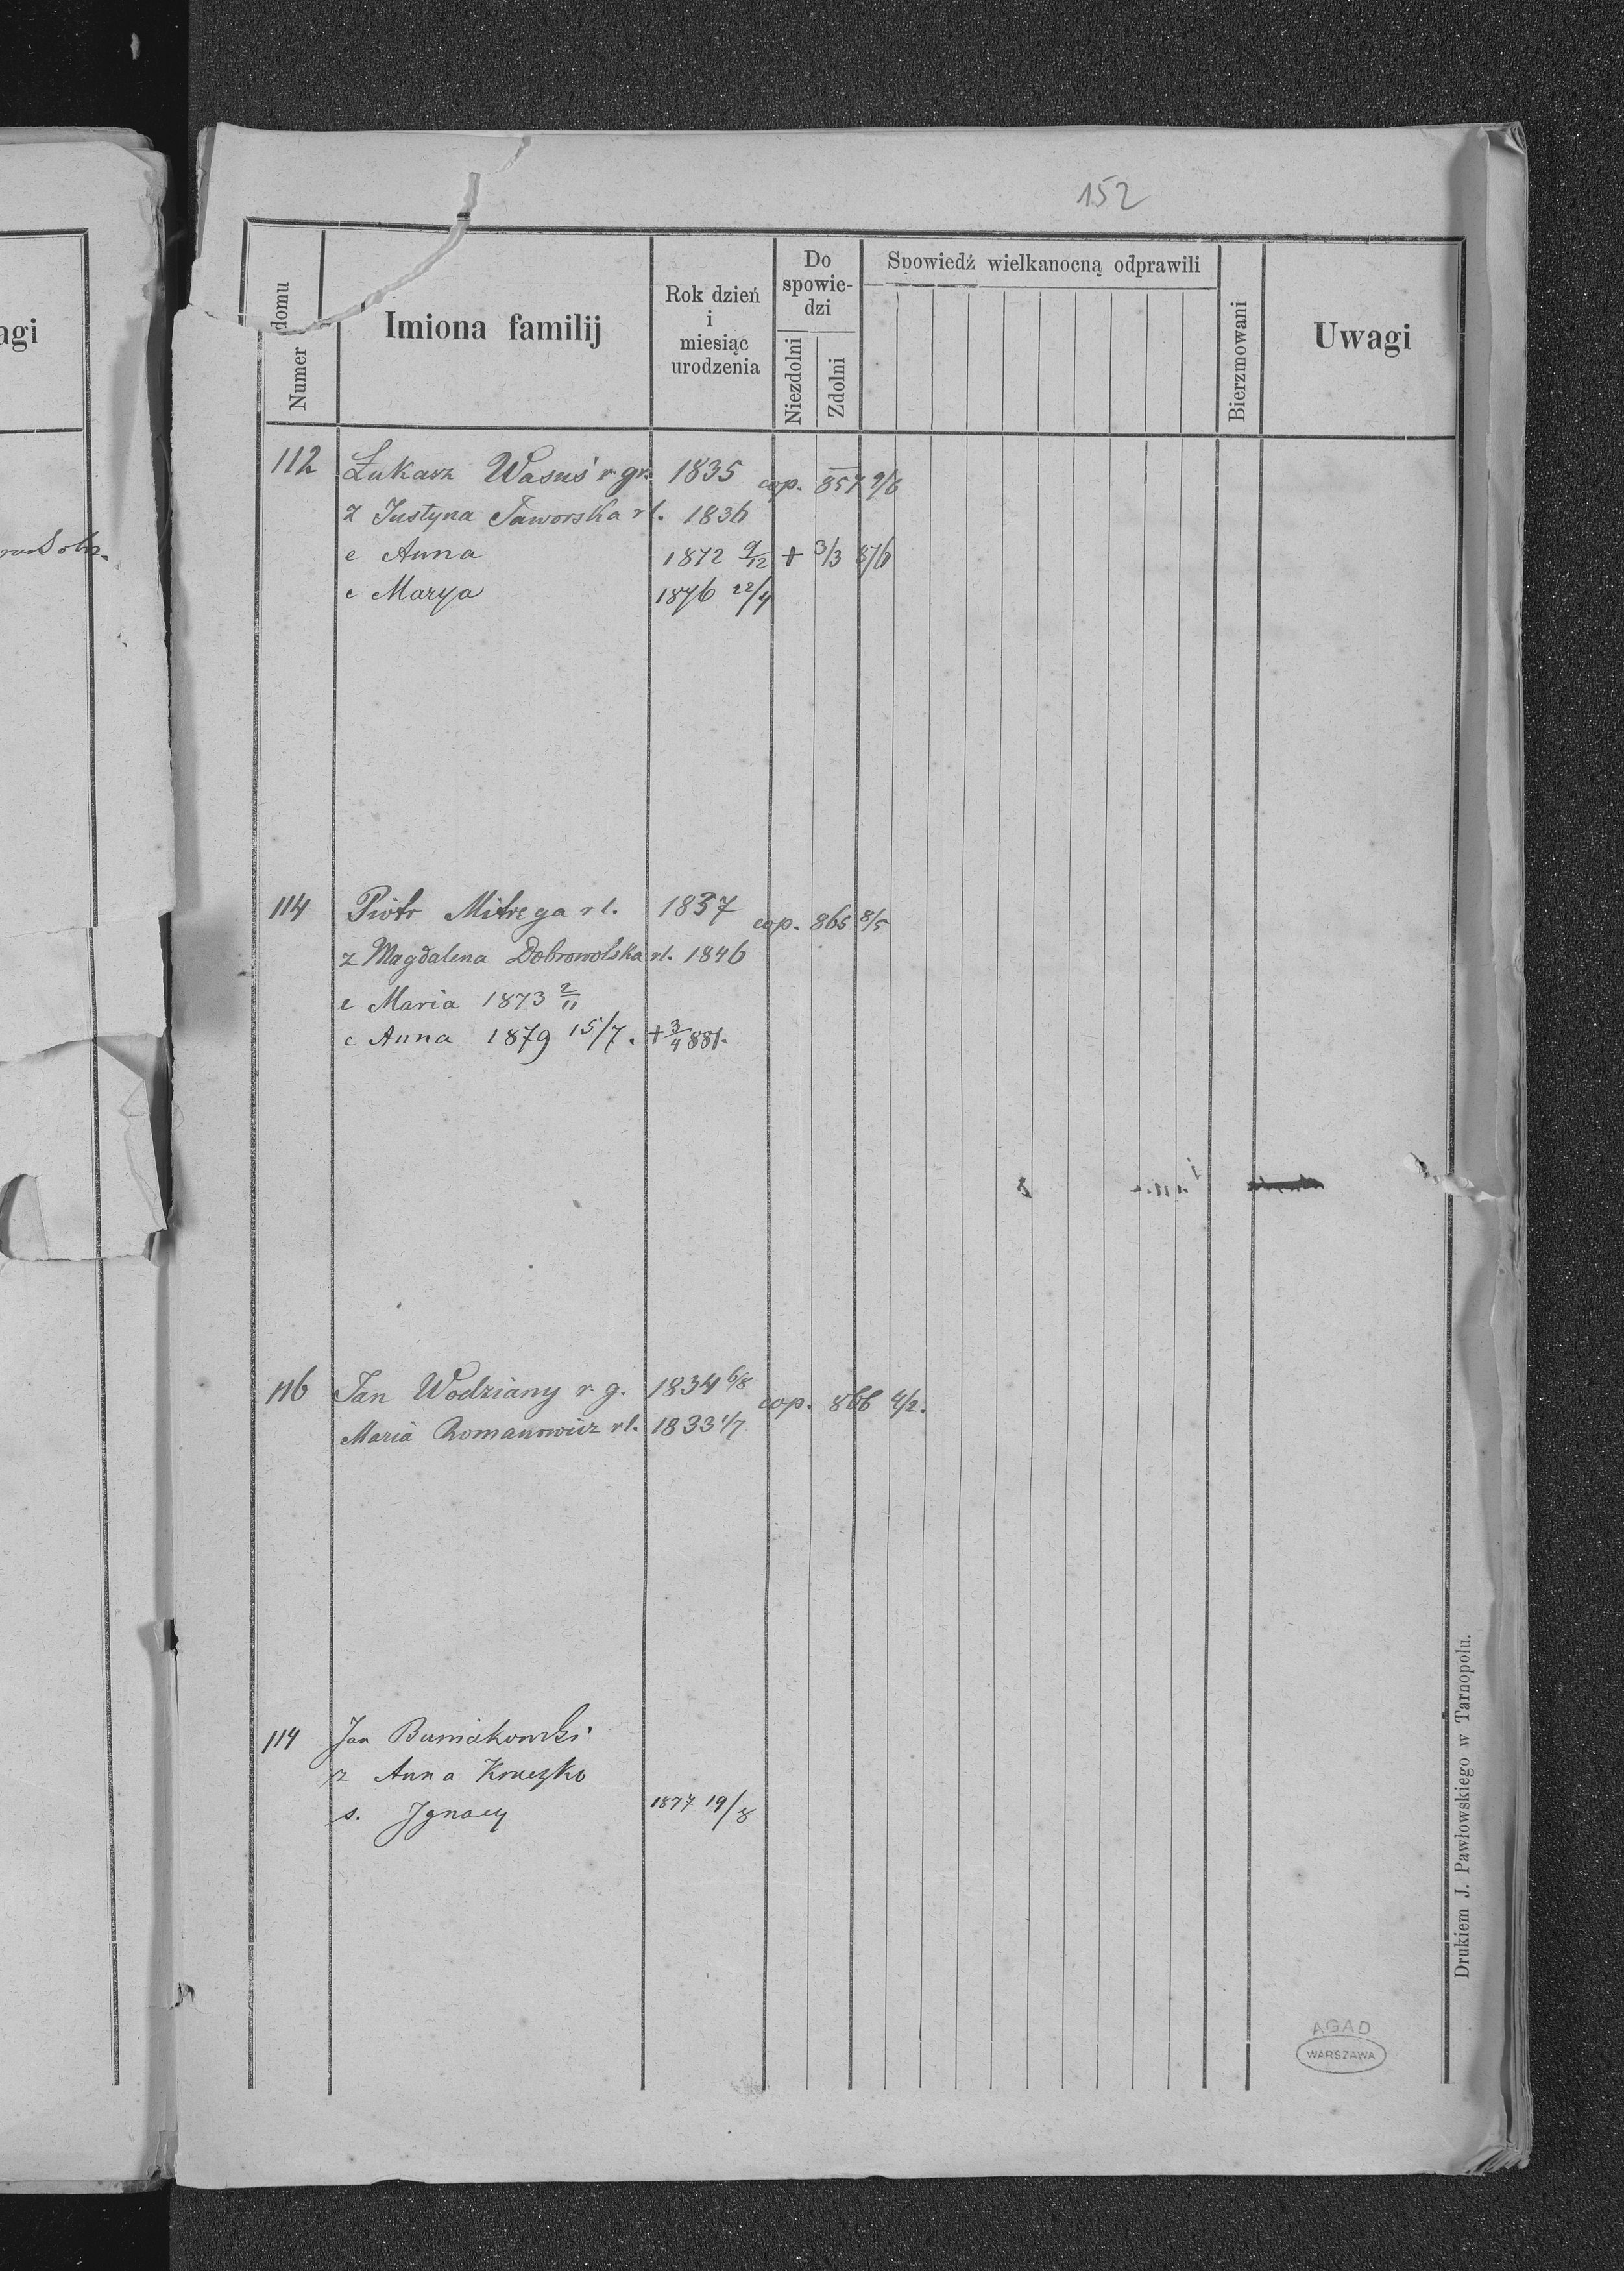 152
Numer domu
Imiona familij
Rok dzień i miesiąc urodzenia
Do spowiedzi
Niezdolni
Zdolni
Spowiedź wielkanocną odprawili
Bierzmowani
Uwagi
agi
112 Łukasz Wasuś r. gr. 1835 cop. 857 9/6
ż Justyna Jaworska rl. 1836
c Anna 1872 9/12 + 3/3 876
c Marya 1876 22/4
114 Piotr Mitręga rl. 1837 cop. 865 8/5
ż Magdalena Dobrowolska rl. 1846
c Maria 1873 2/11
c Anna 1879 15/7. + 3/4 881.
116 Jan Wodziany r. g. 1834 6/8 cop. 866 4/2.
Maria Romanowicz rl. 1833 1/7
114 Jan Buniakowski
ż Anna
s. Ignacy 1877 19/8
Drukiem J. Pawłowskiego w Tarnopolu.
AGAD
WARSZAWA